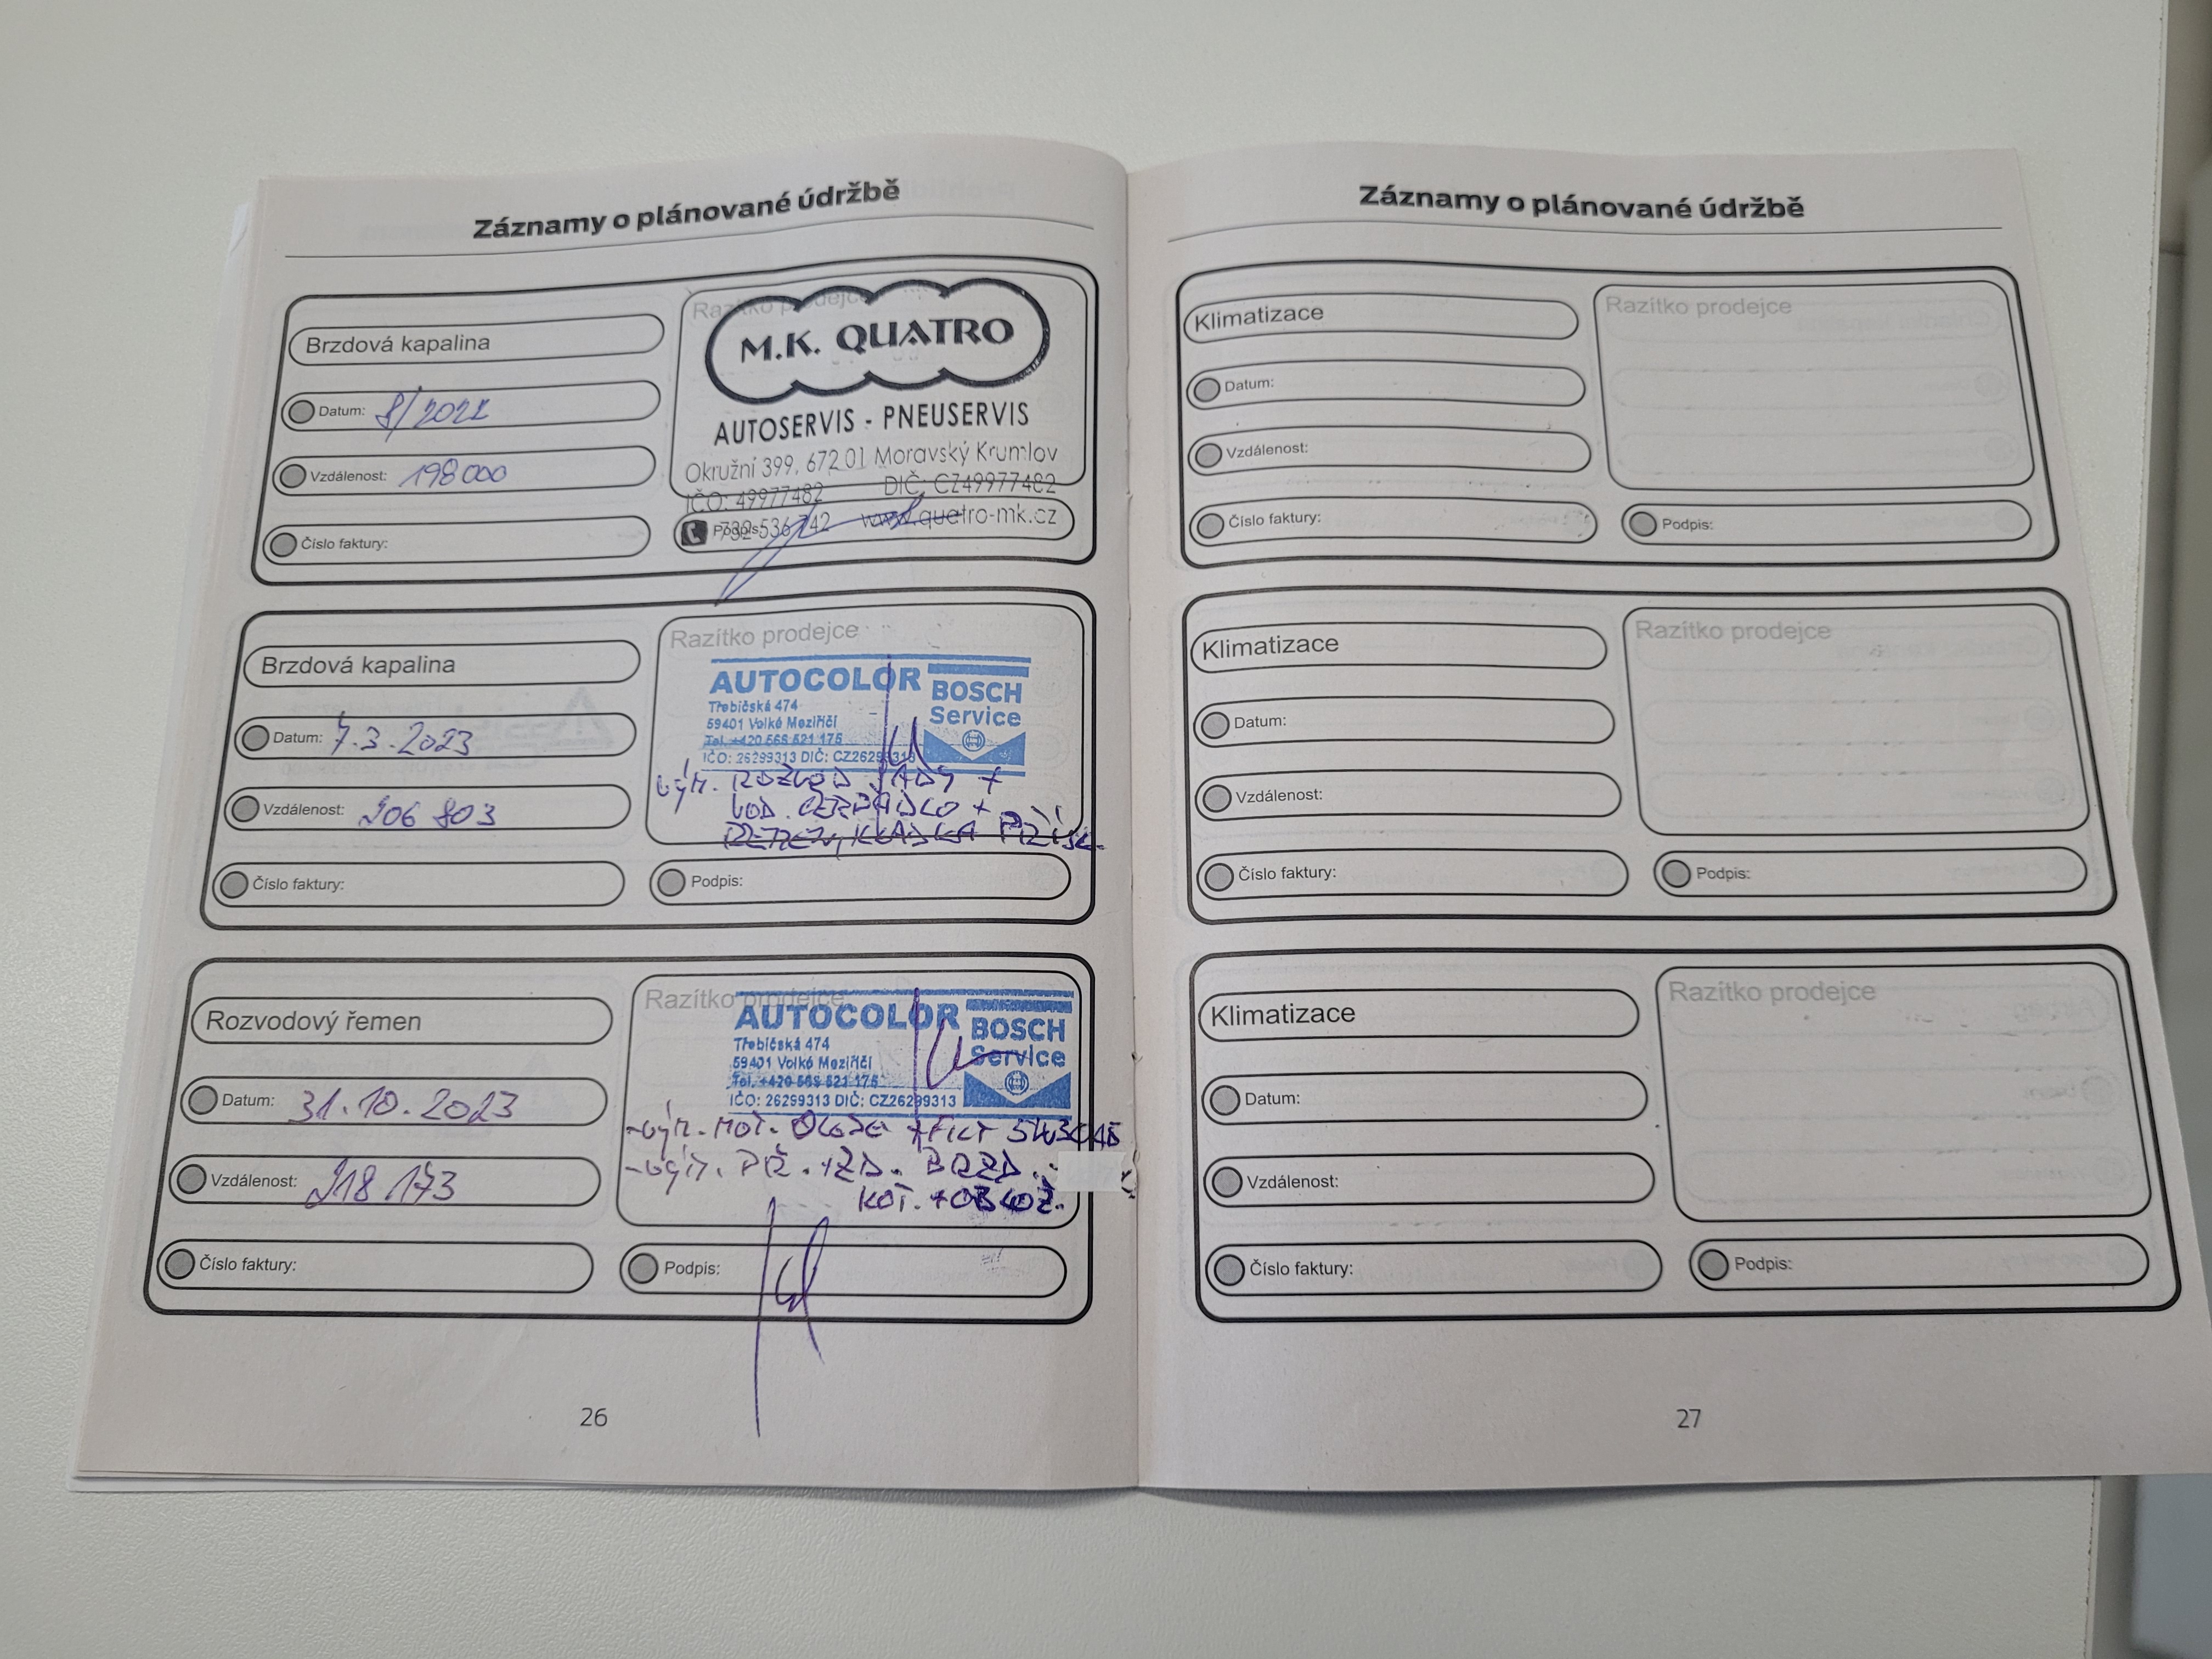 Záznamy o plánované údržbě
Brzdová kapalina
Datum: 8/2022
Vzdálenost: 198 000
Číslo faktury:
Razítko prodejce
M.K. QUATRO
AUTOSERVIS - PNEUSERVIS
Okružní 399, 672 01 Moravský Krumlov
IČO: 49977482 DIČ: CZ49977482
732 536 742 www.quatro-mk.cz
Podpis:
Brzdová kapalina
Datum: 7.3.2023
Vzdálenost: 206 803
Číslo faktury:
Razítko prodejce
AUTOCOLOR
BOSCH
Service
Třebíčská 474
59401 Velké Meziříčí
Tel. +420 566 521 175
IČO: 26299313 DIČ: CZ26299313
vým. ROZVOD. SADY +
VOD. ČERPADLO +
ŘEMEN, KLADKA PŘÍSL.
Podpis:
Rozvodový řemen
Datum: 31.10.2023
Vzdálenost: 218 173
Číslo faktury:
Razítko prodejce
AUTOCOLOR
BOSCH
Service
Třebíčská 474
59401 Velké Meziříčí
Tel. +420 566 521 175
IČO: 26299313 DIČ: CZ26299313
-vým. MOT. OLEJE + FILT
-vým. PŘ. + ZD. BRZD.
KOT. + OBLOŽ.
Podpis:
26
Záznamy o plánované údržbě
Klimatizace
Datum:
Vzdálenost:
Číslo faktury:
Razítko prodejce
Podpis:
Klimatizace
Datum:
Vzdálenost:
Číslo faktury:
Razítko prodejce
Podpis:
Klimatizace
Datum:
Vzdálenost:
Číslo faktury:
Razítko prodejce
Podpis:
27